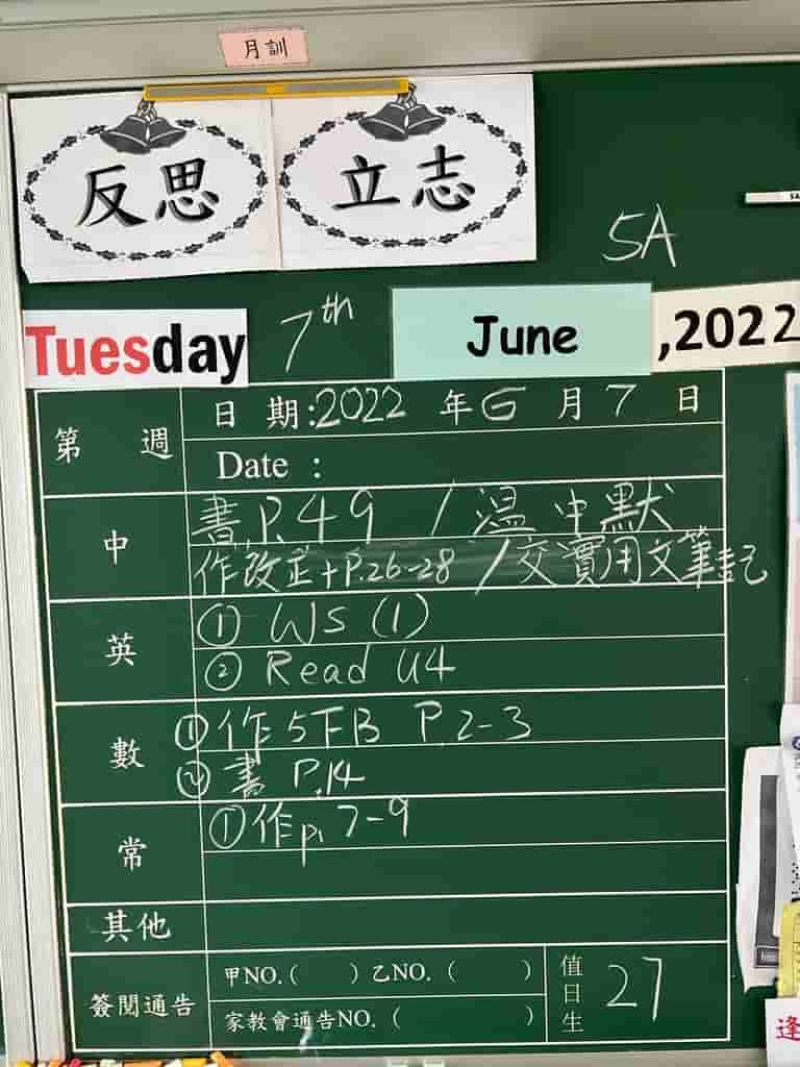 月訓
反思 立志
5A
Tuesday 7th June ,2022
第 週
日 期:2022 年 6 月 7 日
Date :
中
書 P.49 / 溫 中默
作改正+P.26-28 / 交實用文筆記
英
① WS (1)
② Read U4
數
①作 5下B P.2-3
②書 P.14
常
①作p. 7-9
其他
簽閱通告
甲NO. ( ) 乙NO. ( )
家教會通告NO. ( )
值日生 27
逢